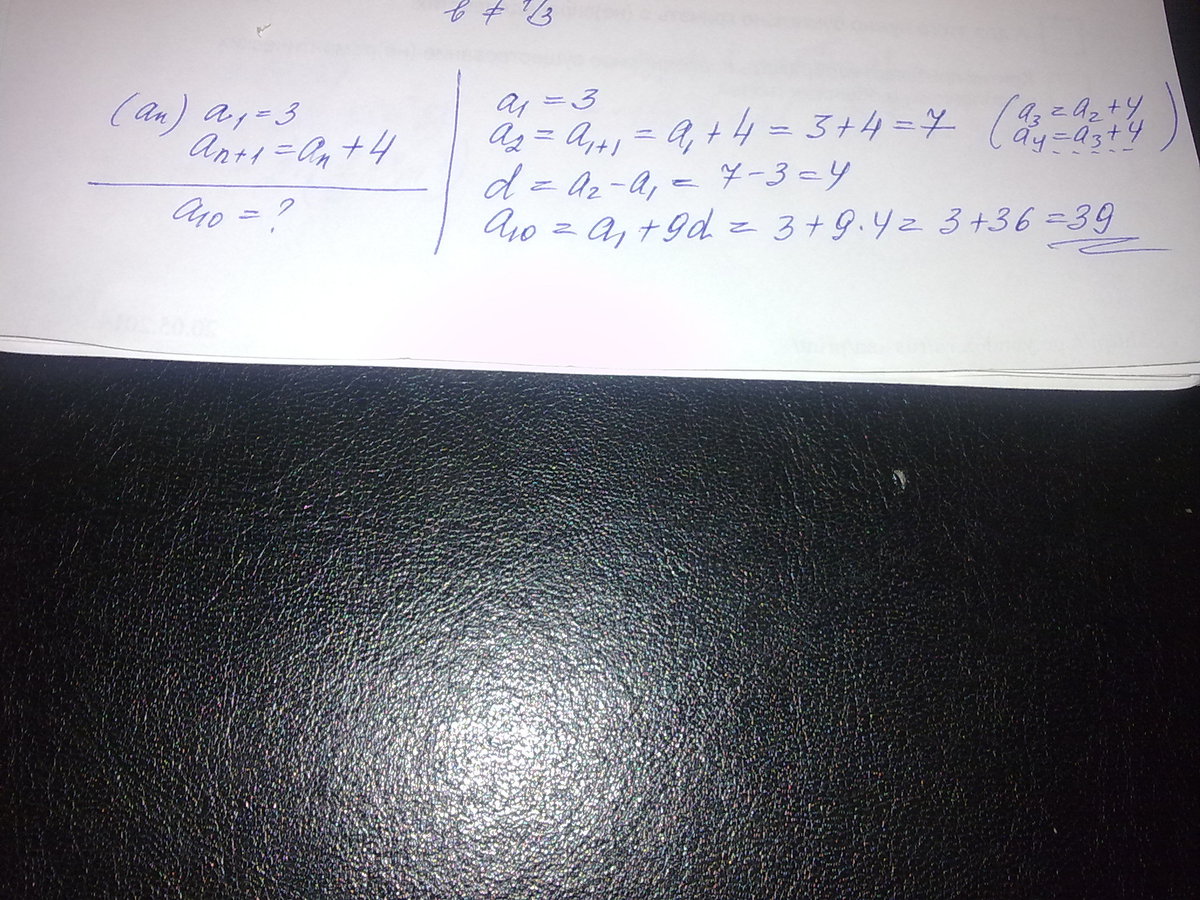 в ≠ 1/3
(an) a1 = 3
an+1 = an + 4
a10 = ?
a1 = 3
a2 = a1+1 = a1 + 4 = 3 + 4 = 7
(a3 = a2 + 4
a4 = a3 + 4)
d = a2 - a1 = 7 - 3 = 4
a10 = a1 + 9d = 3 + 9·4 = 3 + 36 = 39